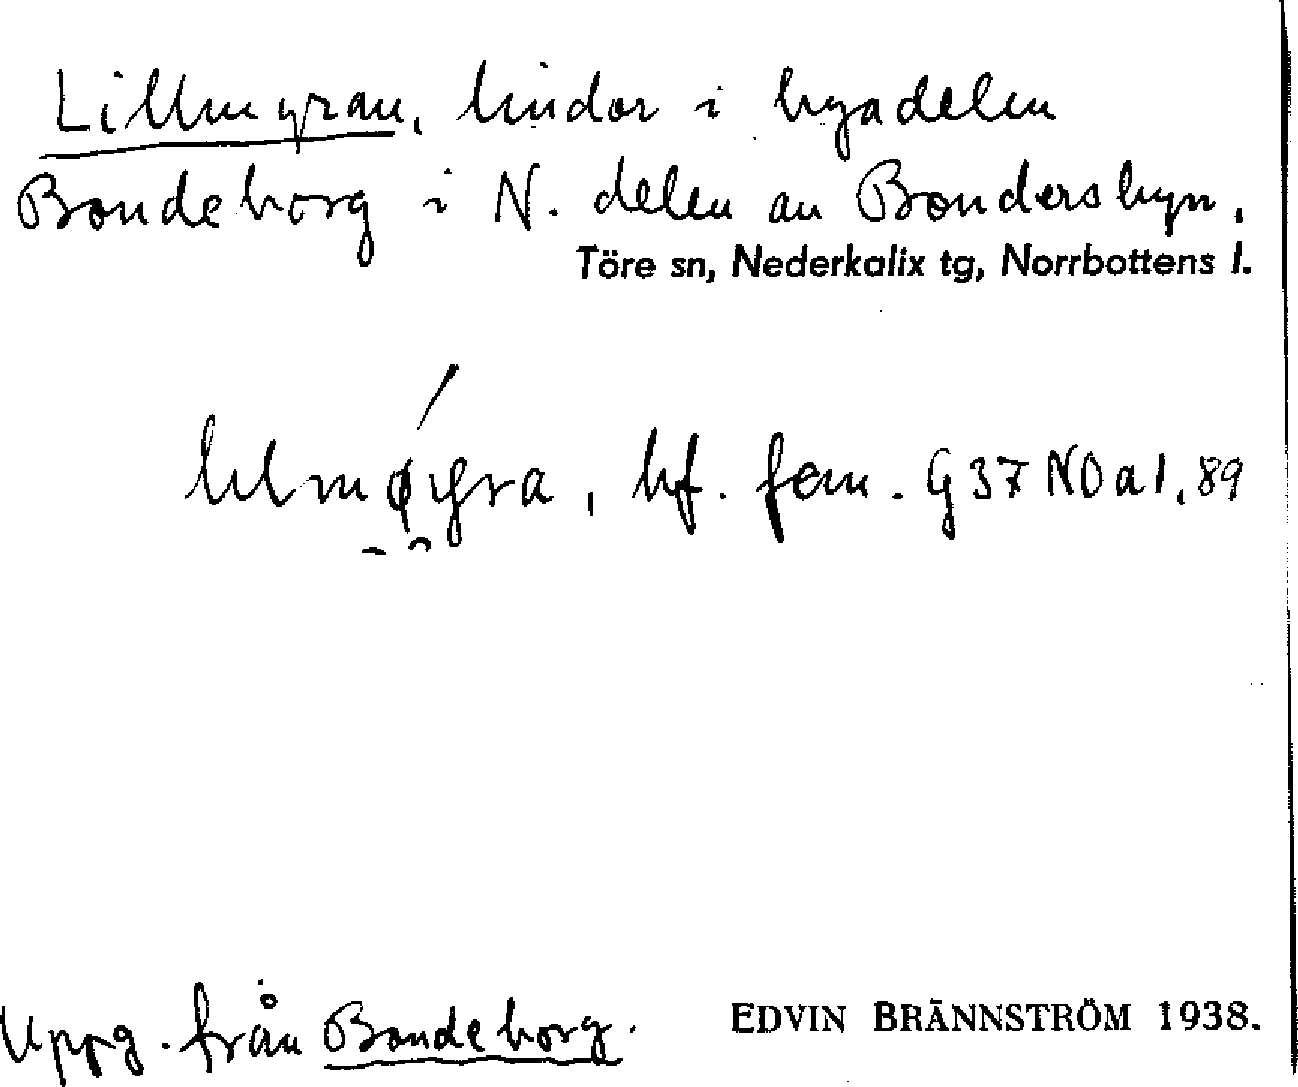 Lillmyran, lindor i byadelen
Bondeborg i N. delen av Bondersbyn.
Töre sn, Nederkalix tg, Norrbottens l.
bf. fem. G 37 NO a 1, 89
Uppg. från Bondeborg.
EDVIN BRÄNNSTRÖM 1938.